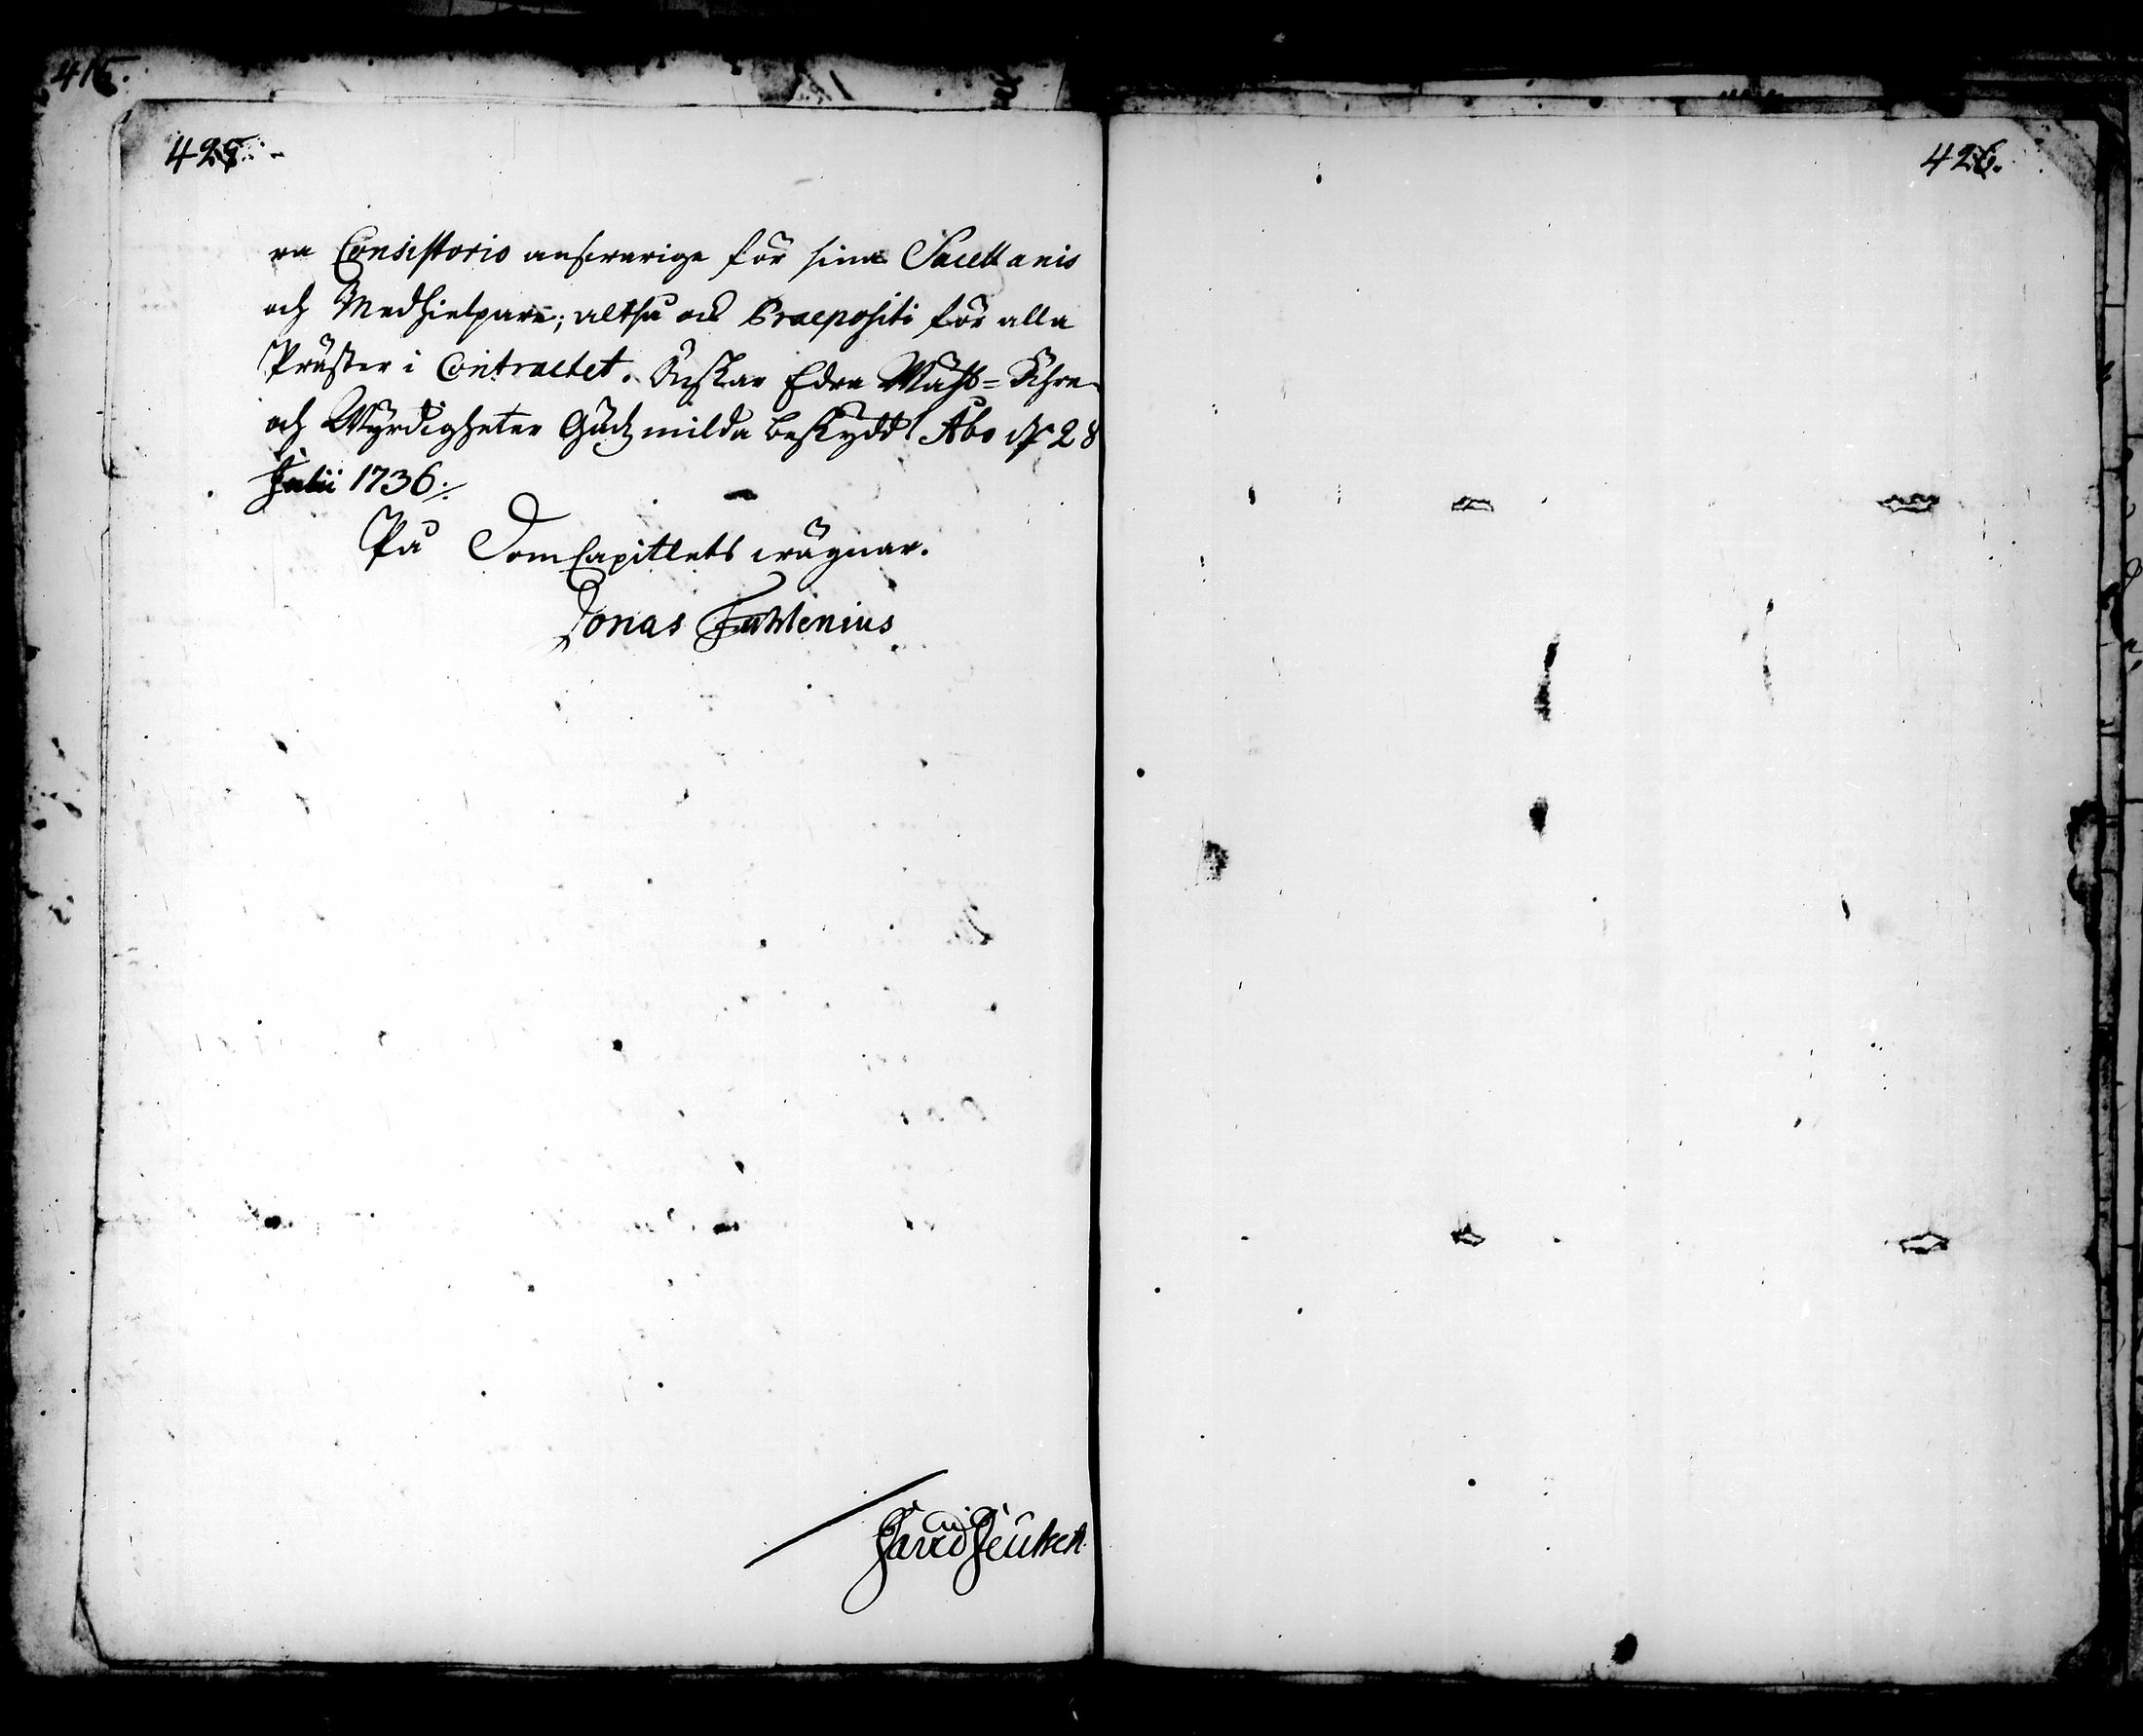 415.
425.
426.
ra Consistorio answarige för sina Sacellanis
och Medhielpare; altså ock Praepositi för alla
Präster i Contractet. Önskar Edra Wähl-Ehre-
och Wyrdigheter Gudz milda beskydd! Åbo d. 28
Julii 1736.
På DomCapitlets wägnar.
Jonas Fahlenius
David Deutsch